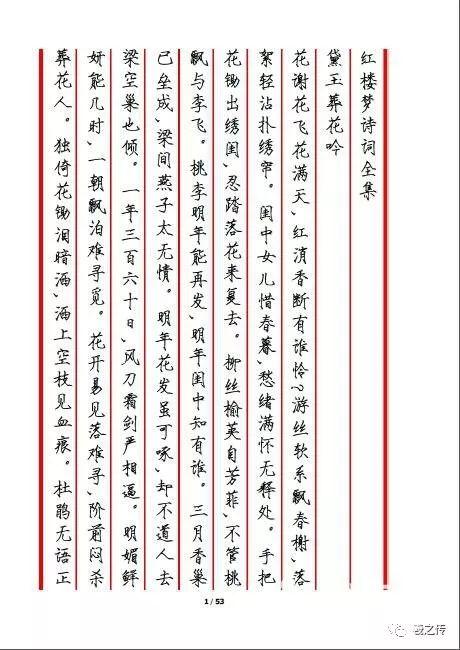 红楼梦诗词全集
黛玉葬花吟
花谢花飞花满天、红消香断有谁怜?游丝软系飘春榭、落
絮轻沾扑绣帘。闺中女儿惜春暮、愁绪满怀无释处。手把
花锄出绣闺、忍踏落花来复去。柳丝榆荚自芳菲、不管桃
飘与李飞。桃李明年能再发、明年闺中知有谁。三月香巢
已垒成、梁间燕子太无情。明年花发虽可啄、却不道人去
梁空巢也倾。一年三百六十日、风刀霜剑严相逼。明媚鲜
妍能几时、一朝飘泊难寻觅。花开易见落难寻、阶前闷杀
葬花人。独倚花锄泪暗洒、洒上空枝见血痕。杜鹃无语正
1 / 53
羲之传